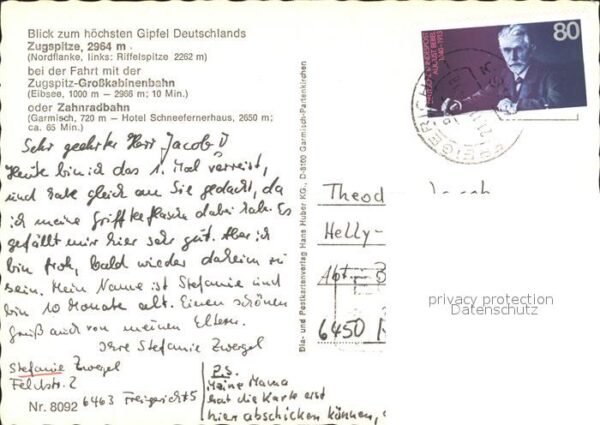 Blick zum höchsten Gipfel Deutschlands
Zugspitze, 2964 m
(Nordflanke, links: Riffelspitze 2262 m)
bei der Fahrt mit der
Zugspitz-Großkabinenbahn
(Eibsee, 1000 m – 2966 m; 10 Min.)
oder Zahnradbahn
(Garmisch, 720 m – Hotel Schneefernerhaus, 2650 m;
ca. 65 Min.)
Sehr geehrter Herr Jacob
Heute bin ich das 1. Mal verreist,
und habe gleich an Sie gedacht, da
ich meine Griffteeflasche dabei hab. Es
gefällt mir hier sehr gut. Aber ich
bin froh, bald wieder daheim zu
sein. Mein Name ist Stefanie und
bin 10 Monate alt. Einen schönen
Gruß auch von meinen Eltern.
Ihre Stefanie Zwergel
Stefanie Zwergel
Feldstr. 2
6463 Freigericht 5
Nr. 8092
P.S.
Meine Mama
hat die Karte erst
hier abschicken können,
Dia- und Postkartenverlag Hans Huber KG., D-8100 Garmisch-Partenkirchen
80
DEUTSCHE BUNDESPOST
AUGUST BEBEL
1840-1913
FREIGERICHT
Theod Jacob
Helly-
Abt.
6450
privacy protection
Datenschutz